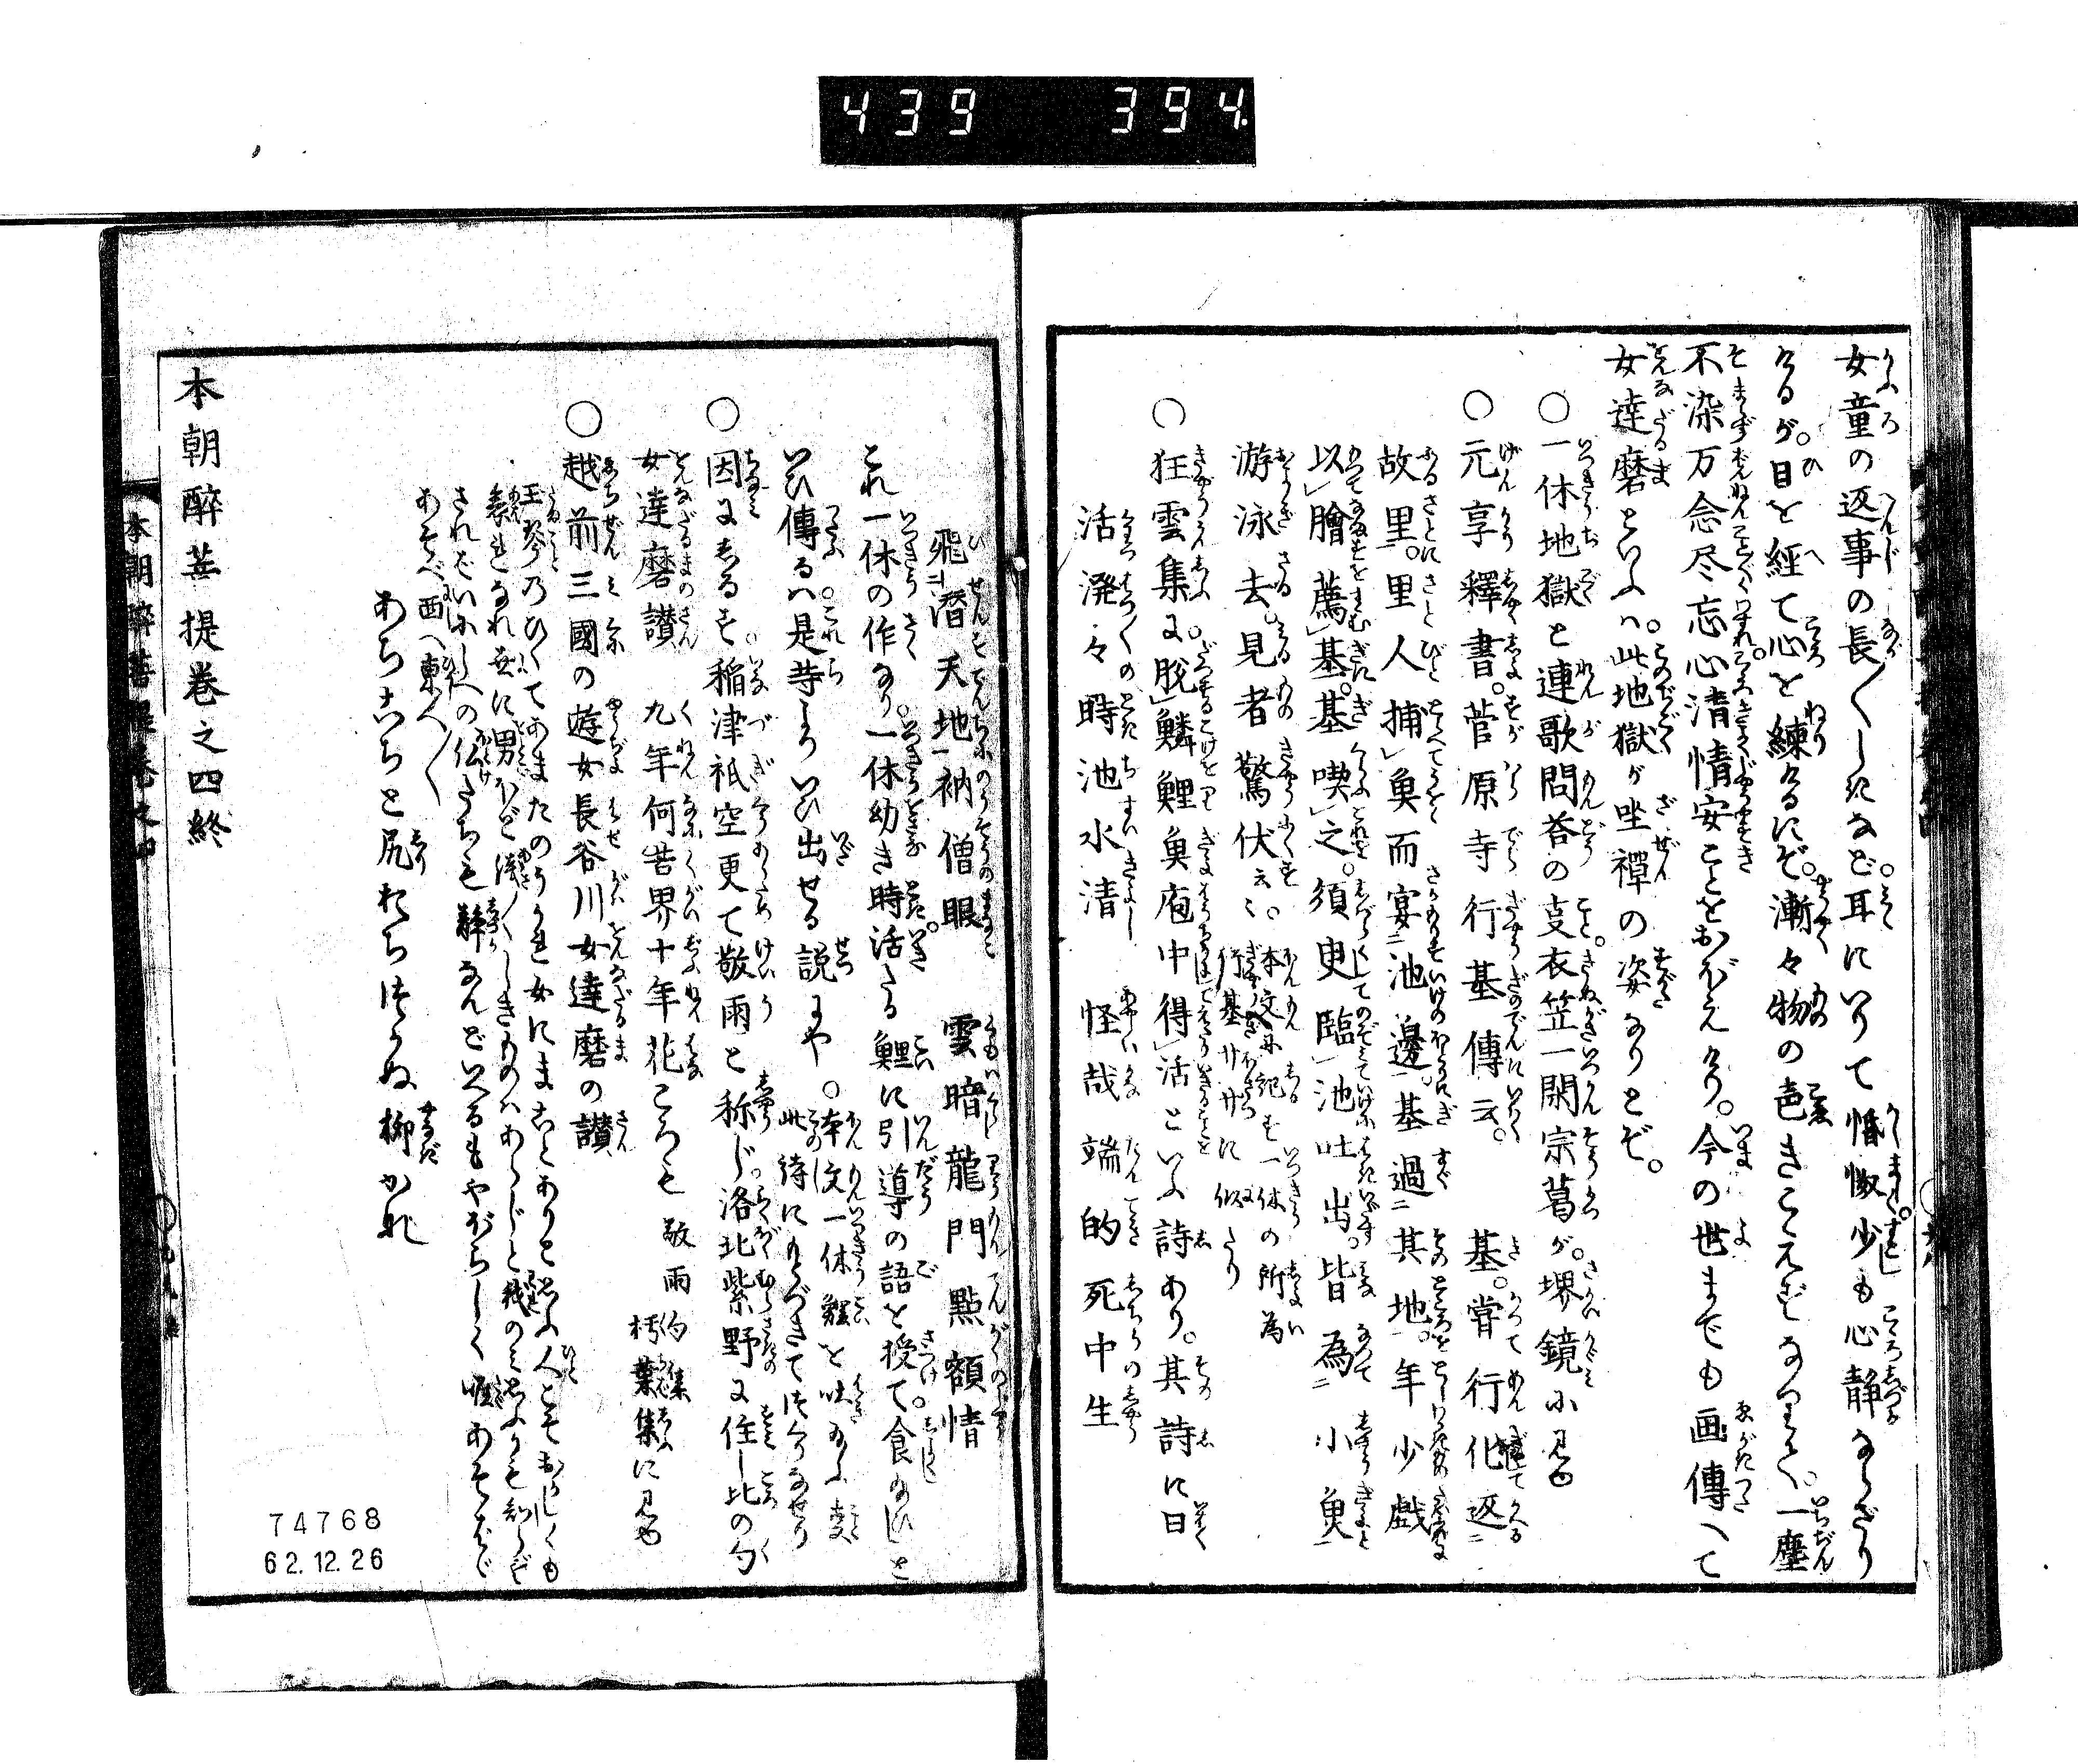 439 394.
女童の返事の長〳〵しきなど。耳にいりて惛慠少も心静ならざり
けるが。日を経て心を練けるにぞ。漸々物の色きこえずなりて。一塵
不染万念尽忘心清情安ことをおぼえけり。今の世までも画傳へて
女達磨といふハ。此地獄が坐禅の姿なりとぞ。
○一休地獄と連歌問荅の支衣笠一閑宗葛が。堺鏡に見ゆ
○元享釋書。菅原寺行基傳云。 基。嘗行化返二
故里一。里人捕レ魚而宴二池邊一。基過二其地一。年少戯
以レ膾薦レ基。基喫レ之。須臾臨レ池吐出。皆為二小魚一
游泳去。見者驚伏云々。 本文に記せし一休の所為
行基に似たり
○狂雲集に脱レ鱗鯉魚庖中得レ活といふ詩あり。其詩に曰
活溌々時池水清 怪哉端的死中生
飛二潜天地一衲僧眼 雲暗龍門點額情
これ一休の作なり。一休幼き時。活たる鯉に引導の語を授て食給ひしと
いひ傳るハ是等よりいひ出せる説にや。 本文一休鯉を吐給ふ支
此詩にもとづきてつくりなせり
○因にしるす。稲津祇空更て敬雨と称じ。洛北紫野に住し比の句
女達磨讃 九年何苦界十年花ころも 敬雨 句集
朽葉集に見ゆ
○越前三國の遊女長谷川女達磨の讃
玉琴のひくてあまたのうかれ女にまことありと思ふ人こそおかしくも
されどいにしへの仏たちも
あそべ西へ東へ〳〵
あちこちと尻わちつかぬ柳かな
本朝醉菩提巻之四終
本朝醉菩提巻之四
74768
62.12.26